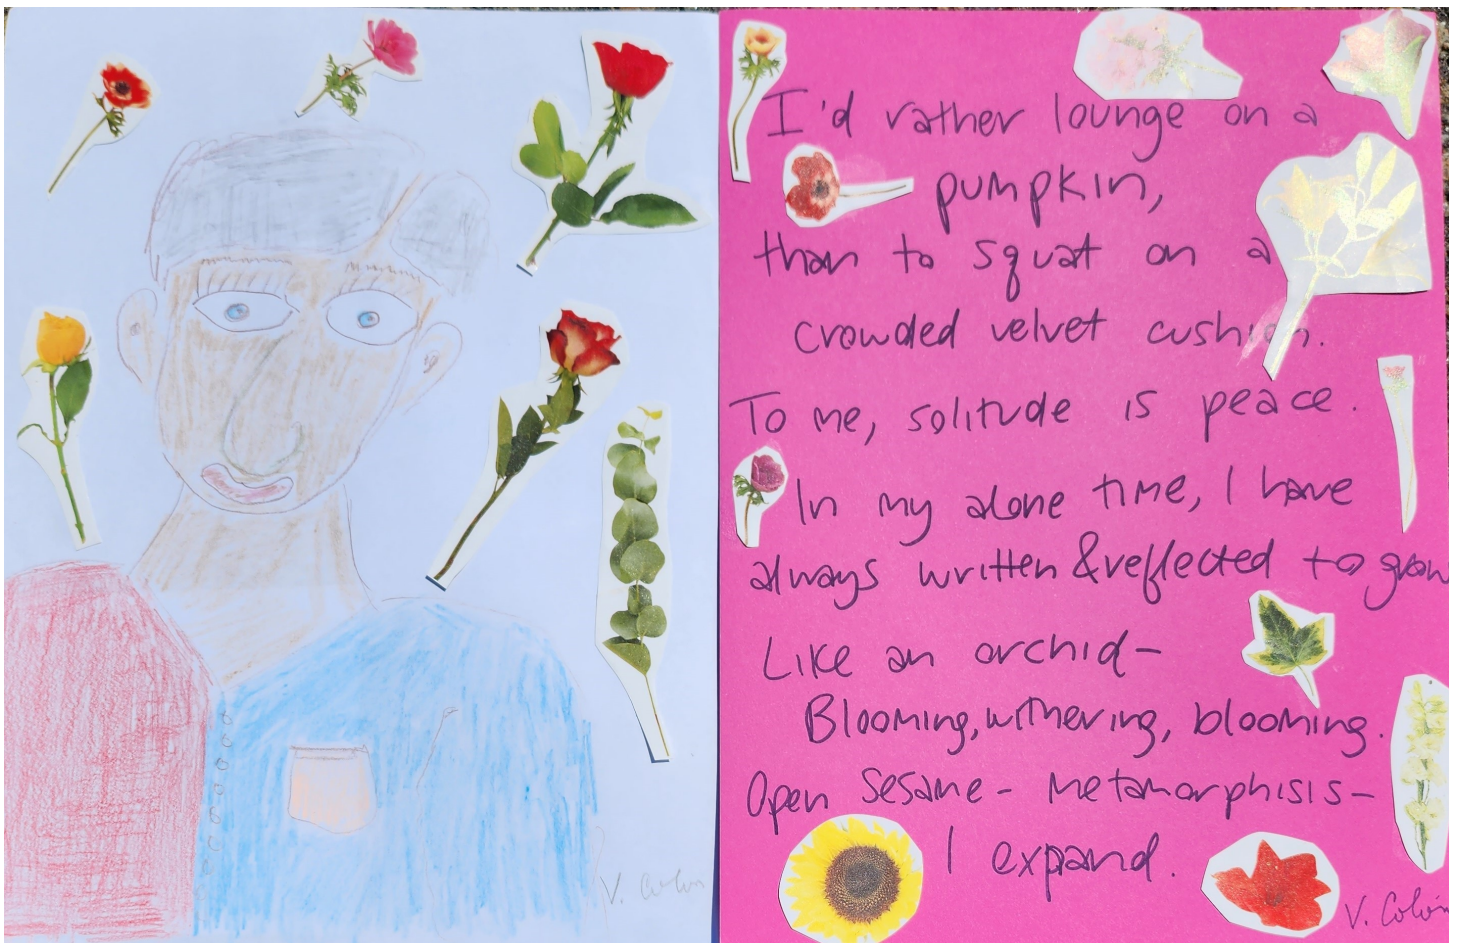 I'd rather lounge on a
pumpkin,
than to squat on a
crowded velvet cushion.
To me, solitude is peace.
In my alone time, I have
always written & reflected to grow
Like an orchid-
Blooming, withering, blooming.
Open Sesame - Metamorphisis-
I expand.
V. Colón
V. Colón